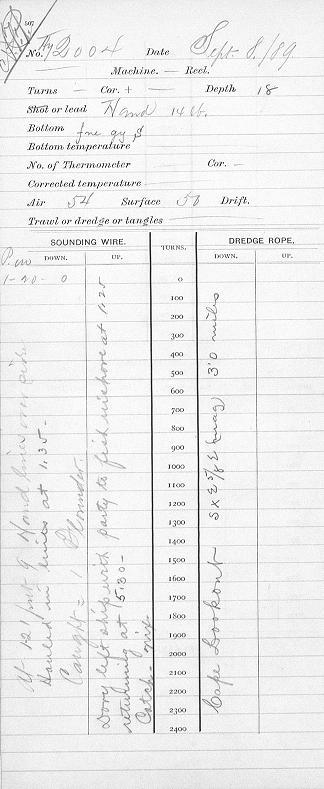 No. Hy 2004 Date Sept. 8./89
Machine. — Reel.
Turns — Cor. + — Depth 18
Shot or lead Hand 14 lb.
Bottom fne gy S
Bottom temperature
No. of Thermometer Cor. —
Corrected temperature
Air 54 Surface 50 Drift.
Trawl or dredge or tangles
SOUNDING WIRE. TURNS. DREDGE ROPE.
P.m DOWN. UP. DOWN. UP.
1-20- 0
0
100
200
300
400
500
600
700
800
900
1000
1100
1200
1300
1400
1500
1600
1700
1800
1900
2000
2100
2200
2300
2400
At 121 put 9 Hand lines over
Hauled in lines at 1.35-
Caught = 1 Flounder.
Dory left ship with party to fish inshore at 1.25
returning at 5.30-
Catch- nix
Cape Lookout S x E 5/8 E (mag) 3'0 miles